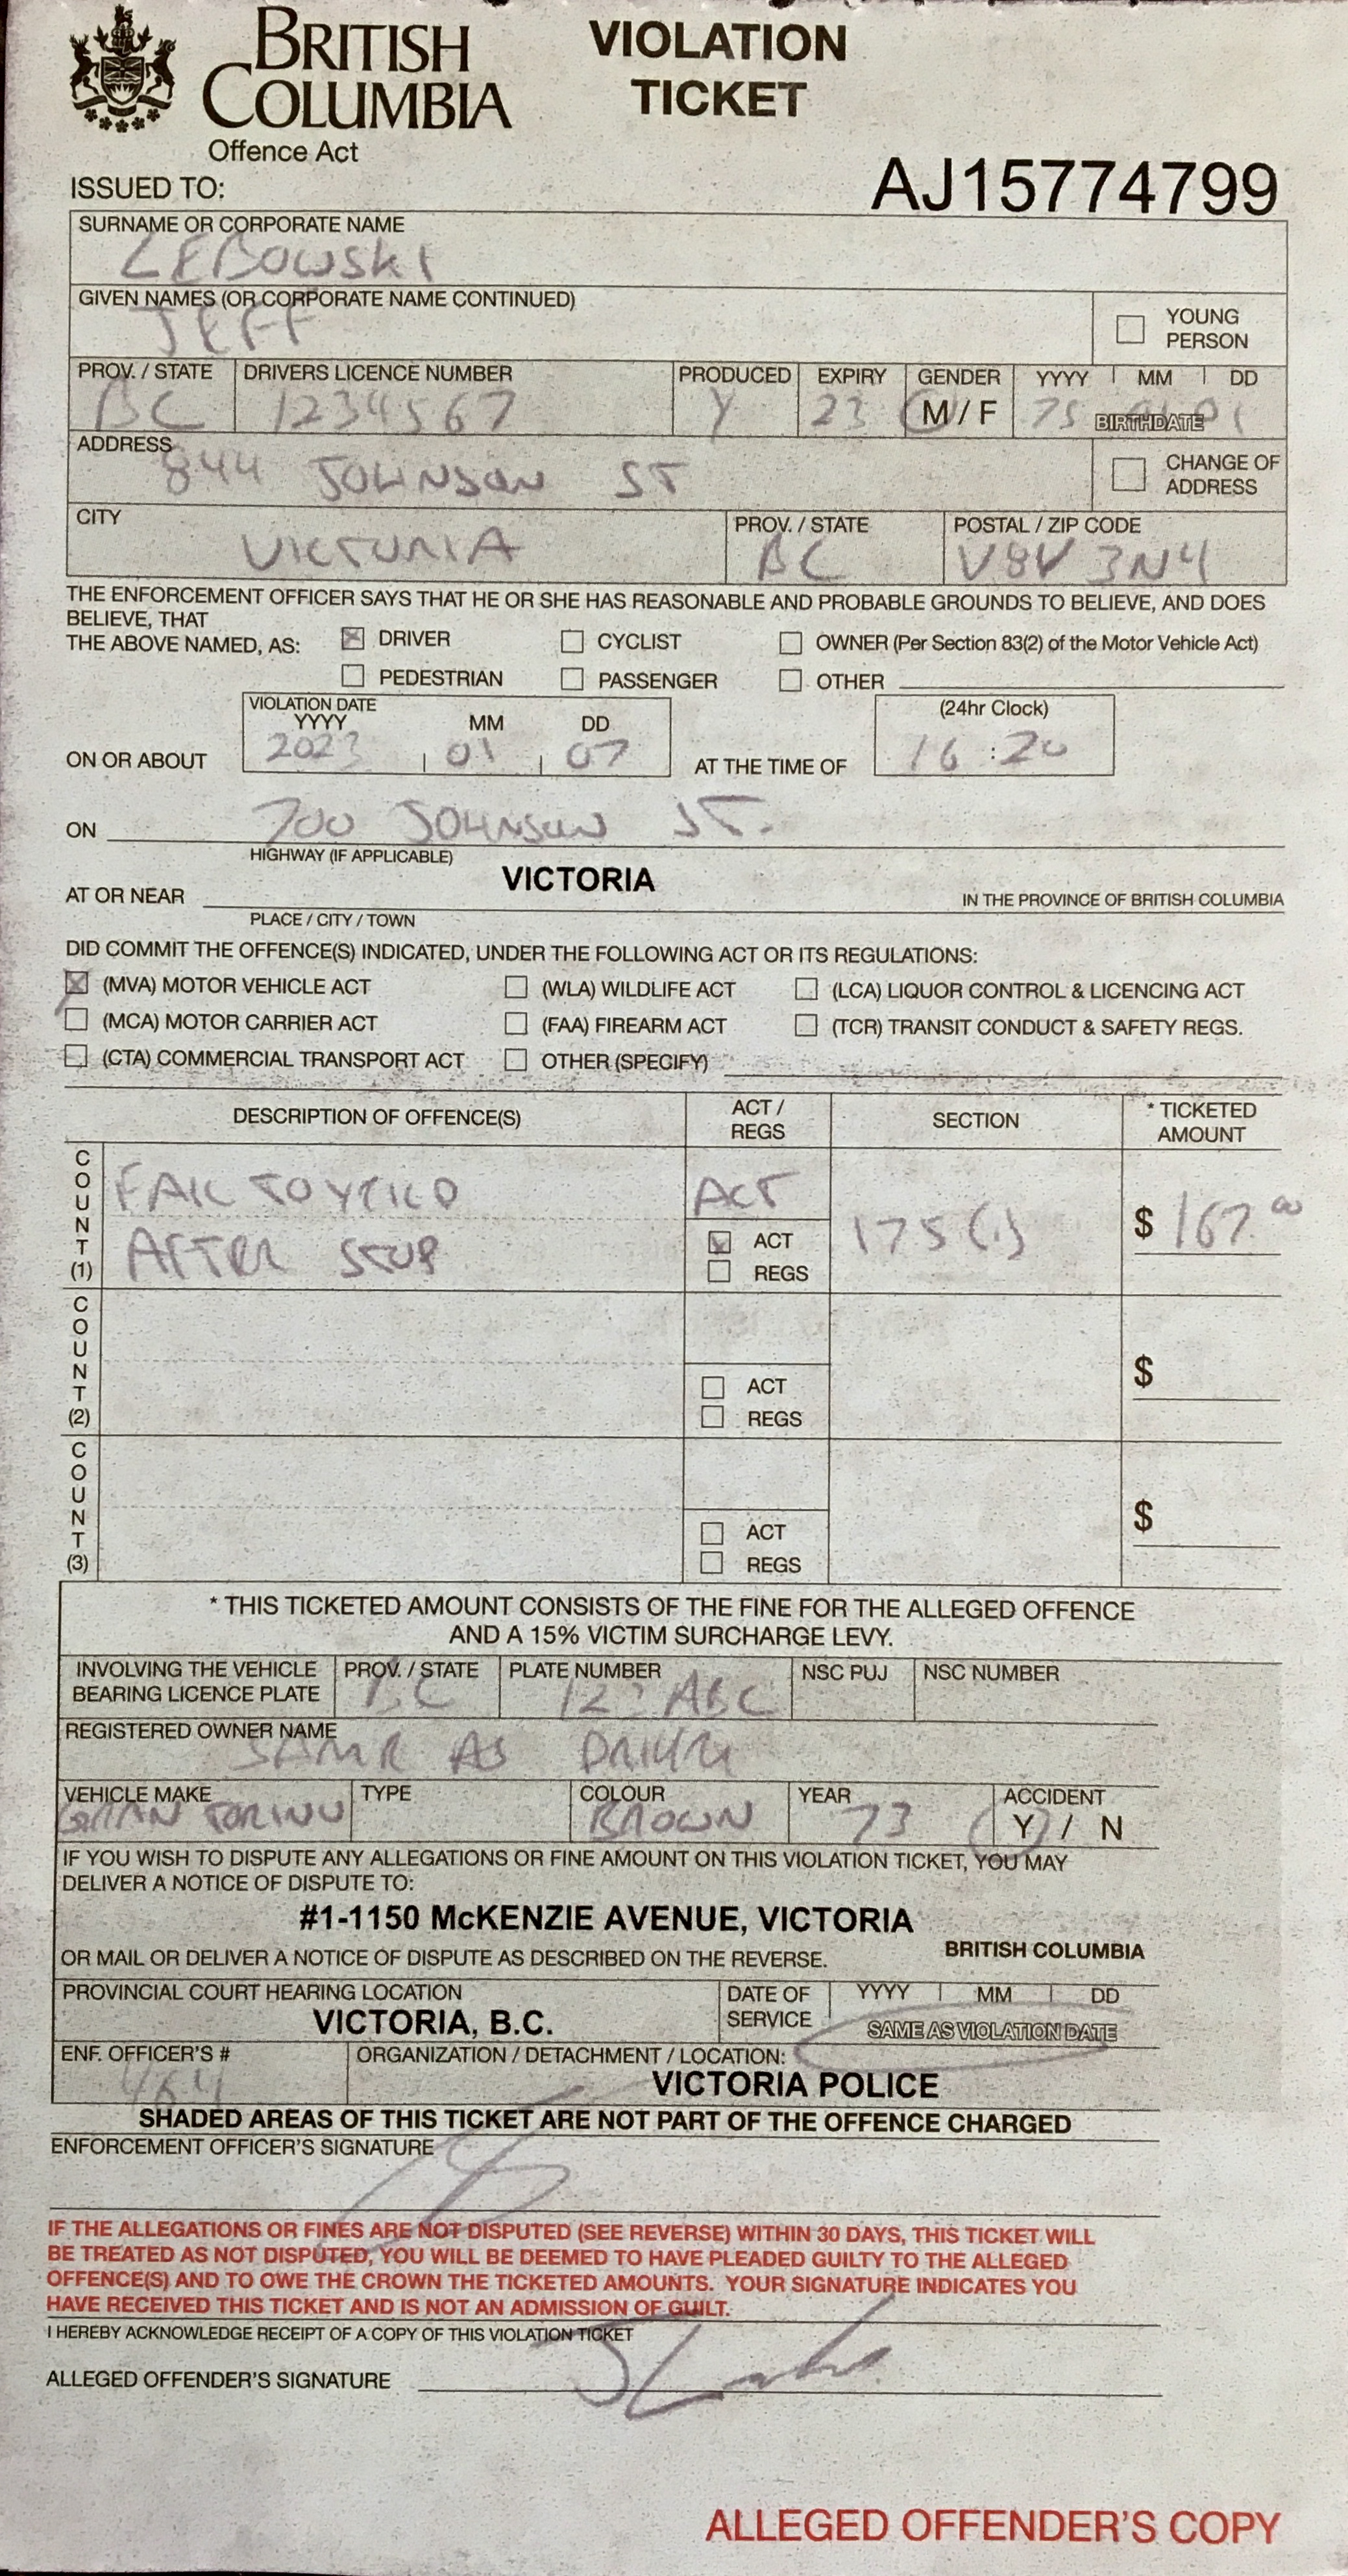 BRITISH COLUMBIA
VIOLATION TICKET
Offence Act
ISSUED TO:
AJ15774799
SURNAME OR CORPORATE NAME
LEBOWSKI
GIVEN NAMES (OR CORPORATE NAME CONTINUED)
JEFF
YOUNG PERSON
PROV. / STATE DRIVERS LICENCE NUMBER PRODUCED EXPIRY GENDER YYYY MM DD
BC 1234567 Y 23 M / F 75 BIRTHDATE
ADDRESS
844 JOHNSON ST
CHANGE OF ADDRESS
CITY PROV. / STATE POSTAL / ZIP CODE
VICTORIA BC V8V 3N4
THE ENFORCEMENT OFFICER SAYS THAT HE OR SHE HAS REASONABLE AND PROBABLE GROUNDS TO BELIEVE, AND DOES
BELIEVE, THAT
THE ABOVE NAMED, AS: DRIVER CYCLIST OWNER (Per Section 83(2) of the Motor Vehicle Act)
PEDESTRIAN PASSENGER OTHER
VIOLATION DATE
YYYY MM DD (24hr Clock)
ON OR ABOUT 2023 01 07 AT THE TIME OF 16:20
ON 700 JOHNSON ST.
HIGHWAY (IF APPLICABLE)
AT OR NEAR VICTORIA IN THE PROVINCE OF BRITISH COLUMBIA
PLACE / CITY / TOWN
DID COMMIT THE OFFENCE(S) INDICATED, UNDER THE FOLLOWING ACT OR ITS REGULATIONS:
(MVA) MOTOR VEHICLE ACT (WLA) WILDLIFE ACT (LCA) LIQUOR CONTROL & LICENCING ACT
(MCA) MOTOR CARRIER ACT (FAA) FIREARM ACT (TCR) TRANSIT CONDUCT & SAFETY REGS.
(CTA) COMMERCIAL TRANSPORT ACT OTHER (SPECIFY)
DESCRIPTION OF OFFENCE(S) ACT / REGS SECTION * TICKETED AMOUNT
COUNT (1) FAIL TO YIELD ACT
AFTER STOP ACT 175(1) $ 167.00
REGS
COUNT (2) $
ACT
REGS
COUNT (3) $
ACT
REGS
* THIS TICKETED AMOUNT CONSISTS OF THE FINE FOR THE ALLEGED OFFENCE
AND A 15% VICTIM SURCHARGE LEVY.
INVOLVING THE VEHICLE BEARING LICENCE PLATE PROV. / STATE PLATE NUMBER NSC PUJ NSC NUMBER
BC 123 ABC
REGISTERED OWNER NAME
SAME AS DRIVER
VEHICLE MAKE TYPE COLOUR YEAR ACCIDENT
GRAN TORINO BROWN 73 Y / N
IF YOU WISH TO DISPUTE ANY ALLEGATIONS OR FINE AMOUNT ON THIS VIOLATION TICKET, YOU MAY
DELIVER A NOTICE OF DISPUTE TO:
#1-1150 McKENZIE AVENUE, VICTORIA
OR MAIL OR DELIVER A NOTICE OF DISPUTE AS DESCRIBED ON THE REVERSE. BRITISH COLUMBIA
PROVINCIAL COURT HEARING LOCATION DATE OF SERVICE YYYY MM DD
VICTORIA, B.C. SAME AS VIOLATION DATE
ENF. OFFICER'S # ORGANIZATION / DETACHMENT / LOCATION:
464 VICTORIA POLICE
SHADED AREAS OF THIS TICKET ARE NOT PART OF THE OFFENCE CHARGED
ENFORCEMENT OFFICER'S SIGNATURE
IF THE ALLEGATIONS OR FINES ARE NOT DISPUTED (SEE REVERSE) WITHIN 30 DAYS, THIS TICKET WILL
BE TREATED AS NOT DISPUTED, YOU WILL BE DEEMED TO HAVE PLEADED GUILTY TO THE ALLEGED
OFFENCE(S) AND TO OWE THE CROWN THE TICKETED AMOUNTS. YOUR SIGNATURE INDICATES YOU
HAVE RECEIVED THIS TICKET AND IS NOT AN ADMISSION OF GUILT.
I HEREBY ACKNOWLEDGE RECEIPT OF A COPY OF THIS VIOLATION TICKET
ALLEGED OFFENDER'S SIGNATURE
ALLEGED OFFENDER'S COPY